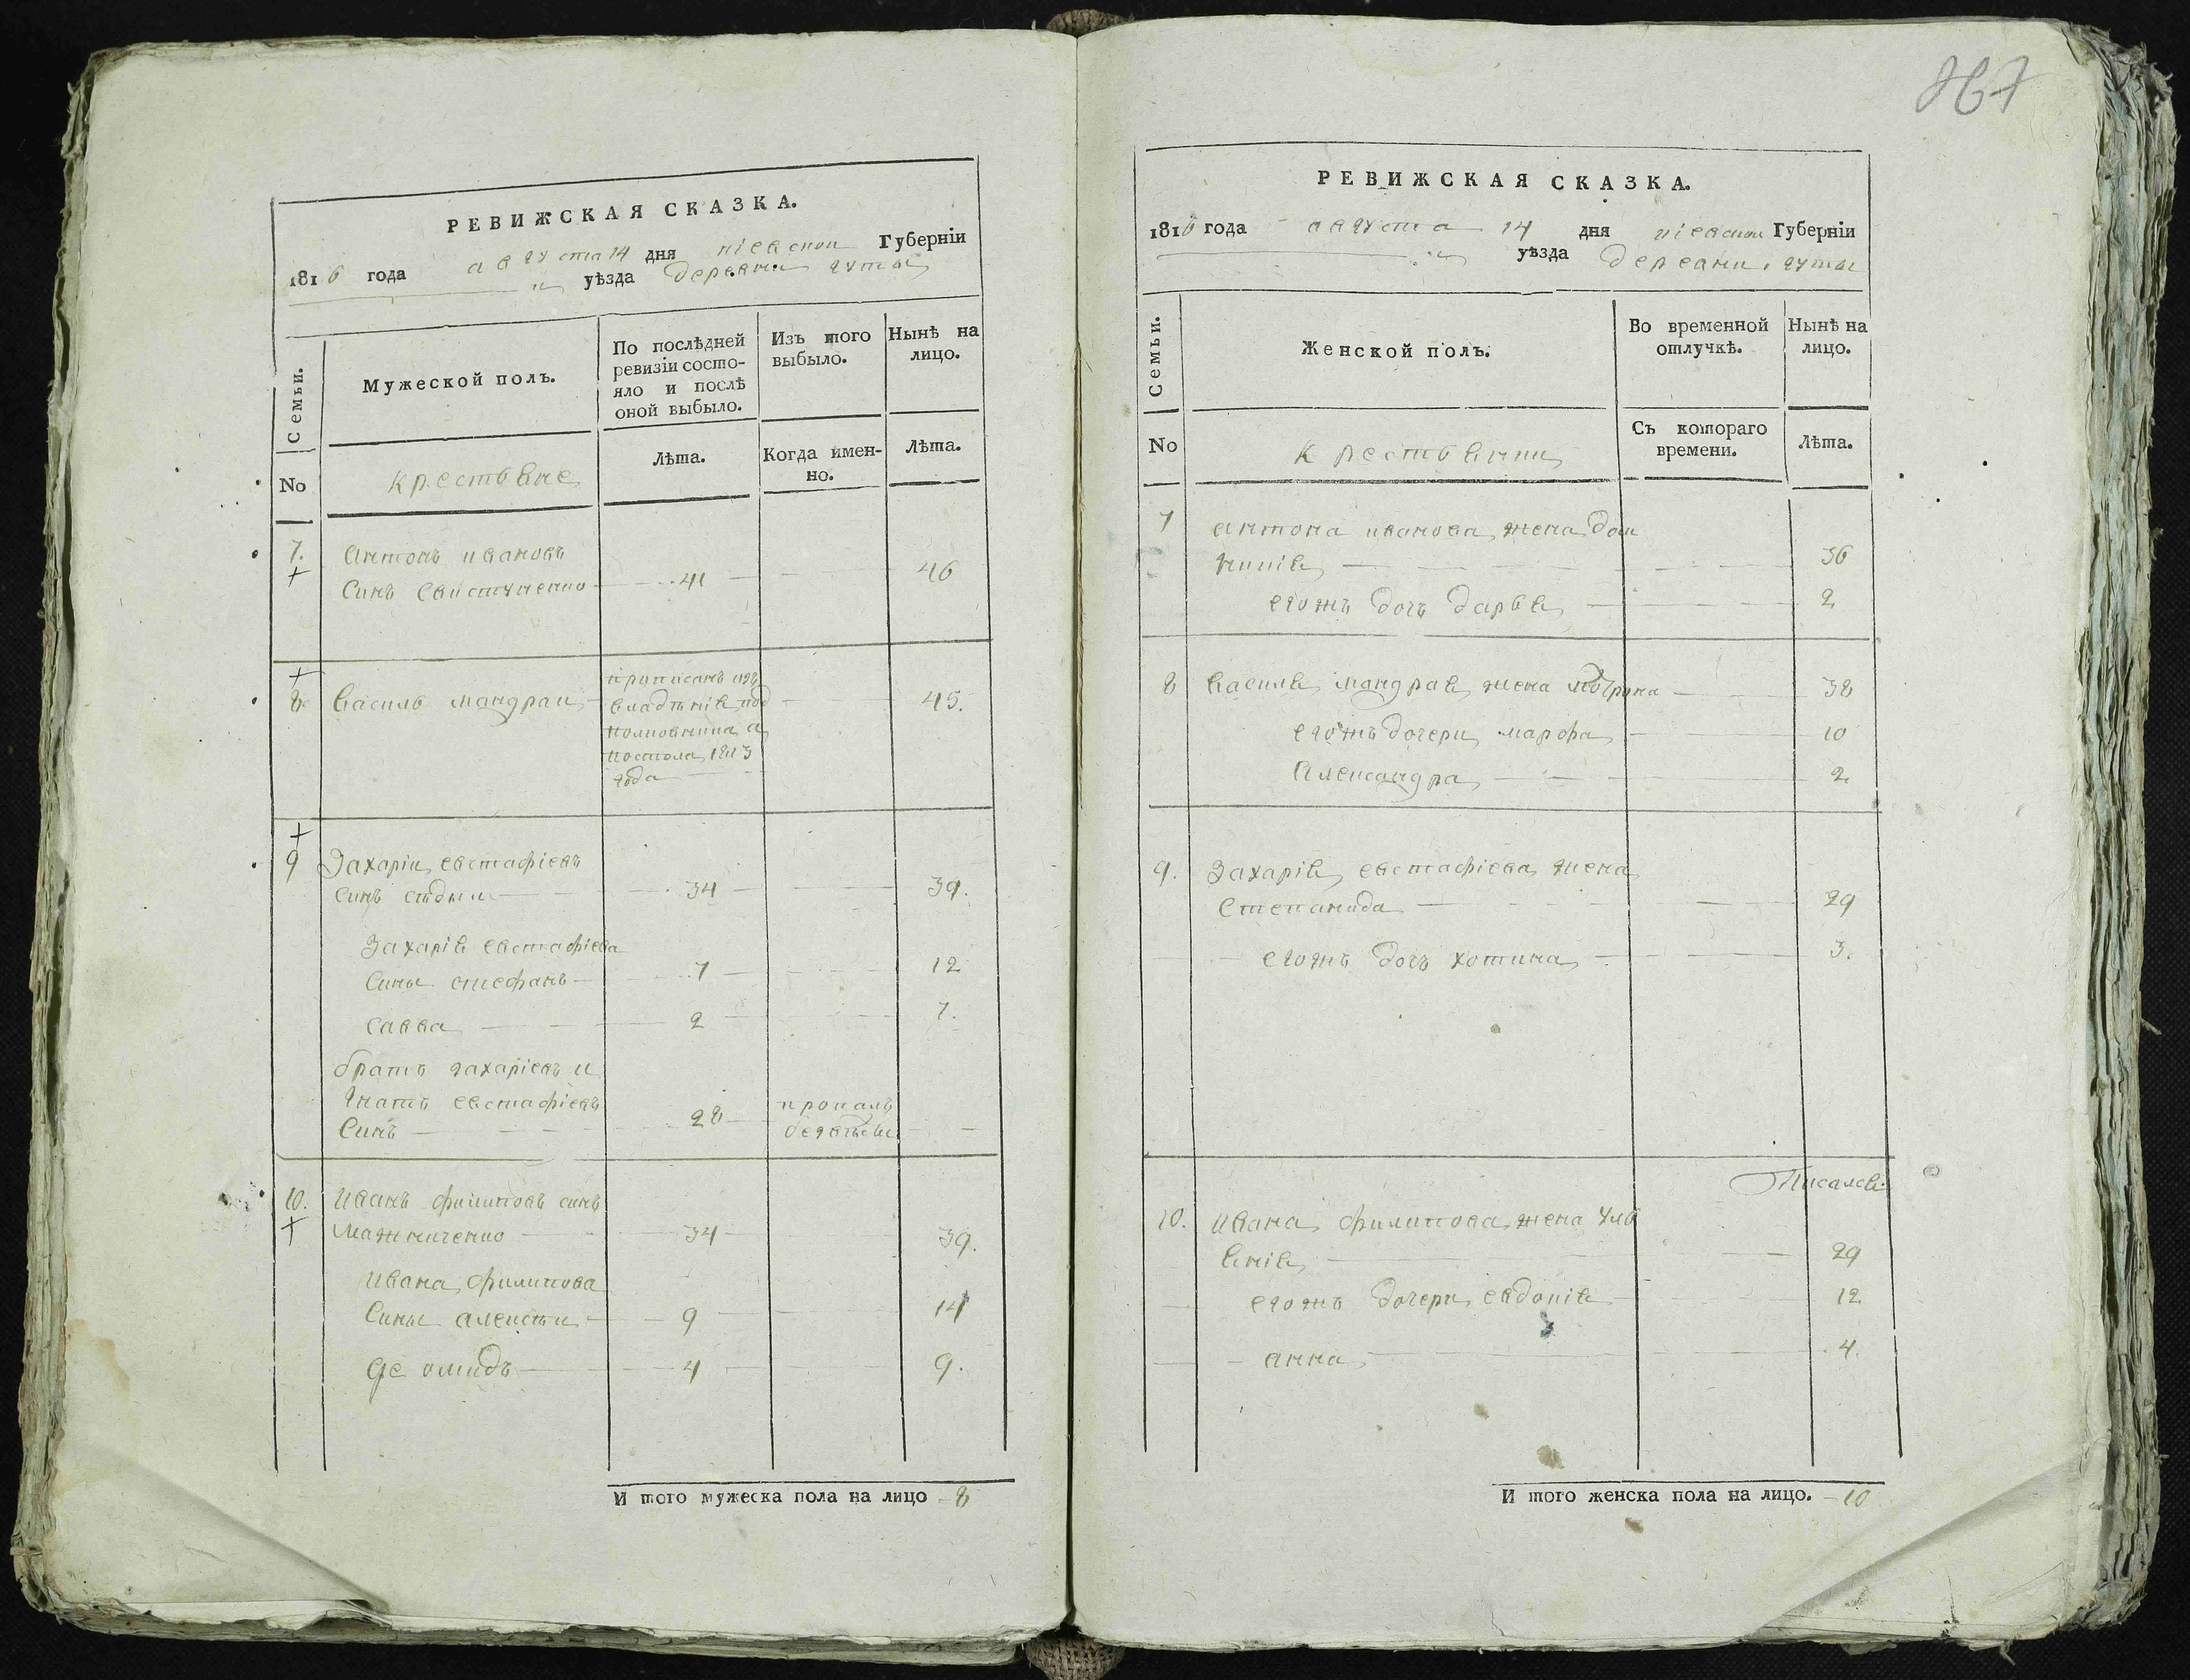 867
РЕВИЖСКАЯ СКАЗКА.
1816 года августа 14 дня кіевской Губерніи
уѣзда деревни гуты
Семьи.
Мужеской полъ.
По послѣдней
ревизіи состо-
яло и послѣ
оной выбыло.
Изъ того
выбыло.
Нынѣ на
лицо.
No
крестьяне
Лѣта.
Когда имен-
но.
Лѣта.
7. Антонъ ивановъ
синъ свистуненко 41 46
8. василь мандрик
приписанъ изъ
владѣнія под
полковника а
постола 1813
года
45.
9 Захарій евстафіевъ
синъ сѣдый 34 39.
Захарія евстафіева
сины стефанъ 7 12
савва 2 7.
братъ захаріевъ и
гнатъ евстафіевъ
синъ 28
пропалъ
10. иванъ филиповъ синъ
34 39.
ивана филипова
сины алексѣй 9 14
4 9.
И того мужеска пола на лицо 8
РЕВИЖСКАЯ СКАЗКА.
1816 года августа 14 дня кіевской Губерніи
уѣзда деревни гуты
Семьи.
Женской полъ.
Во временной
отлучкѣ.
Нынѣ на
лицо.
No
крестьянки
Съ котораго
времени.
Лѣта.
7 антона иванова жена дом
никія 36
егожъ дочь дарья 2
8 василя мандрика жена мотрона 38
егожъ дочери марфа 10
Александра 2
9. Захарія евстафіева жена
степанида 29
егожъ дочь хотина 3.
10. ивана филипова жена уль
яния 29
егожъ дочери евдокія 12
анна 4.
И того женска пола на лицо. 10